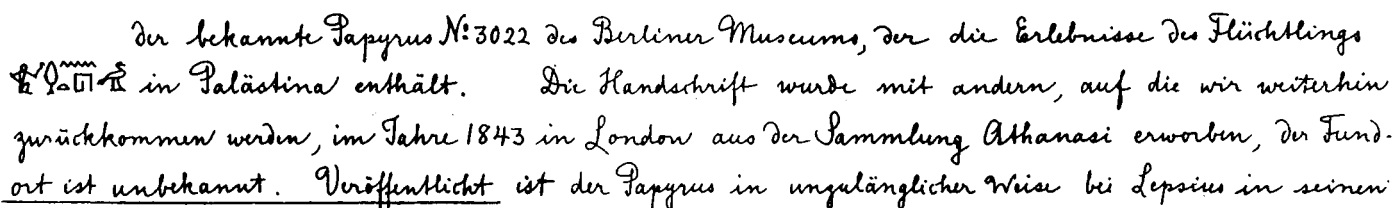 der bekannte Papyrus Nº 3022 des Berliner Museums, der die Erlebnisse des Flüchtlings
in Palästina enthält. Die Handschrift wurde mit andern, auf die wir weiterhin
zurückkommen werden, im Jahre 1843 in London aus der Sammlung Athanasi erworben, der Fund-
ort ist unbekannt. Veröffentlicht ist der Papyrus in unzulänglicher Weise bei Lepsius in seinen